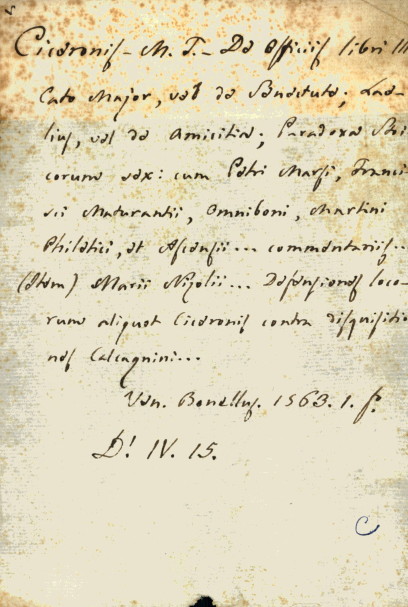 Ciceronis - M. T. - De Officiis libri III
Cato Major, vel de Senectute; Lae-
lius, vel de Amicitia; Paradoxa Stoi
corum sex: cum Petri Marsi, Franci
sci Maturantii, Omniboni, Martini
Philetici, et Ascensii... commentariis..
(Item) Marii Nizolii... Defensiones loco-
rum aliquot Ciceronis contra disquisitio
nes Calcagnini...
Ven. Bonellus. 1563. 1. fo.
D! IV. 15.
C